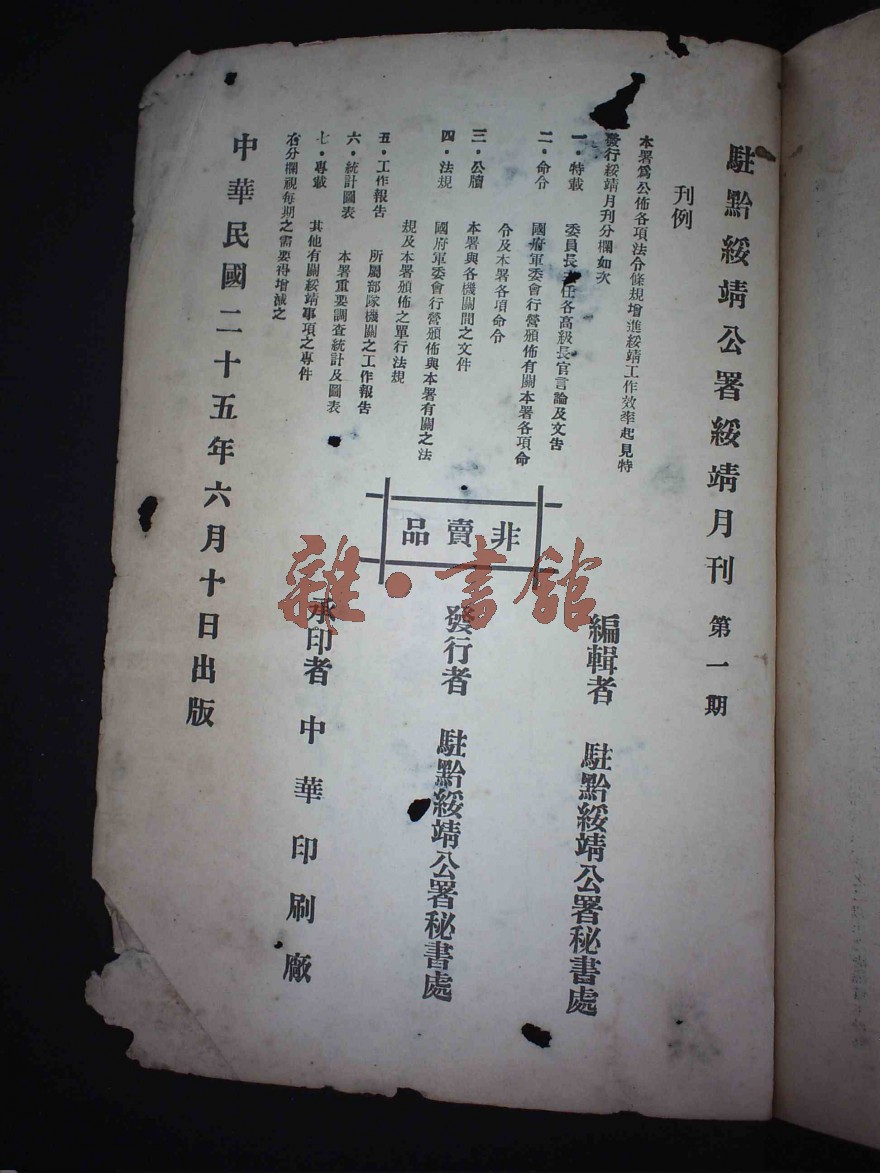 駐黔綏靖公署綏靖月刊 第一期
刊例
本署爲公佈各項法令條規增進綏靖工作效率起見特
發行綏靖月刊分欄如次
一・特載 委員長主任各高級長官言論及文告
二・命令 國府軍委會行營頒佈有關本署各項命
令及本署各項命令
三・公牘 本署與各機關間之文件
四・法規 國府軍委會行營頒佈與本署有關之法
規及本署頒佈之單行法規
五・工作報告 所屬部隊機關之工作報告
六・統計圖表 本署重要調查統計及圖表
七・專載 其他有關綏靖事項之專件
右分欄視每期之需要得增減之
中華民國二十五年六月十日出版
非賣品
編輯者 駐黔綏靖公署秘書處
發行者 駐黔綏靖公署秘書處
承印者 中華印刷廠
雜・書館